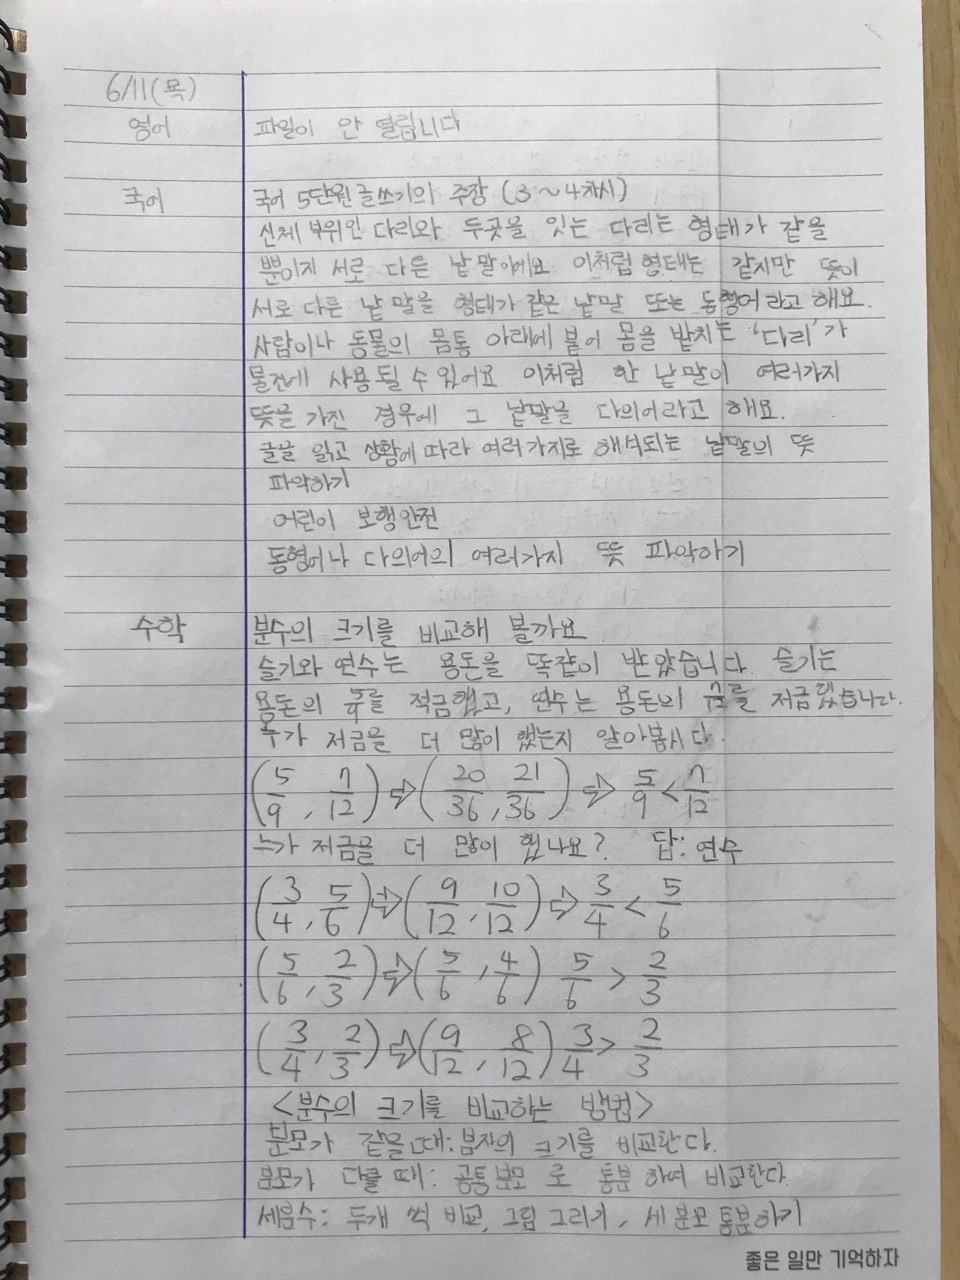 6/11(목)
영어 파일이 안 열립니다
국어 국어 5단원 글쓰기의 주장 (3~4차시)
신체 부위인 다리와 두곳을 잇는 다리는 형태가 같을
뿐이지 서로 다른 낱말이에요. 이처럼 형태는 같지만 뜻이
서로 다른 낱말을 형태가 같은 낱말 또는 동형어라고 해요.
사람이나 동물의 몸통 아래에 붙어 몸을 받치는 '다리'가
물건에 사용될 수 있어요 이처럼 한 낱말이 여러가지
뜻을 가진 경우에 그 낱말을 다의어라고 해요.
글을 읽고 상황에 따라 여러가지로 해석되는 낱말의 뜻
파악하기
어린이 보행안전
동형어나 다의어의 여러가지 뜻 파악하기
수학 분수의 크기를 비교해 볼까요
슬기와 연수는 용돈을 똑같이 받았습니다. 슬기는
용돈의 5/9를 적금했고, 연수는 용돈의 7/12를 저금했습니다.
누가 저금을 더 많이 했는지 알아봅시다.
(5/9, 7/12) ⇨ (20/36, 21/36) ⇨ 5/9 < 7/12
누가 저금을 더 많이 했나요? 답: 연수
(3/4, 5/6) ⇨ (9/12, 10/12) ⇨ 3/4 < 5/6
(5/6, 2/3) ⇨ (5/6, 4/6) 5/6 > 2/3
(3/4, 2/3) ⇨ (9/12, 8/12) 3/4 > 2/3
<분수의 크기를 비교하는 방법>
분모가 같을 때: 분자의 크기를 비교한다.
분모가 다를 때: 공통분모로 통분하여 비교한다.
세분수: 두개 씩 비교, 그림 그리기, 세 분모 통분하기
좋은 일만 기억하자